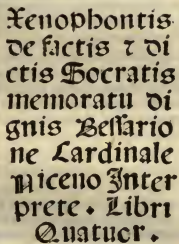 Xenophontis
de factis ⁊ di
ctis Socratis
memoratu di
gnis Bessario
ne Cardinale
Niceno Inter
prete. Libri
Quatuor.